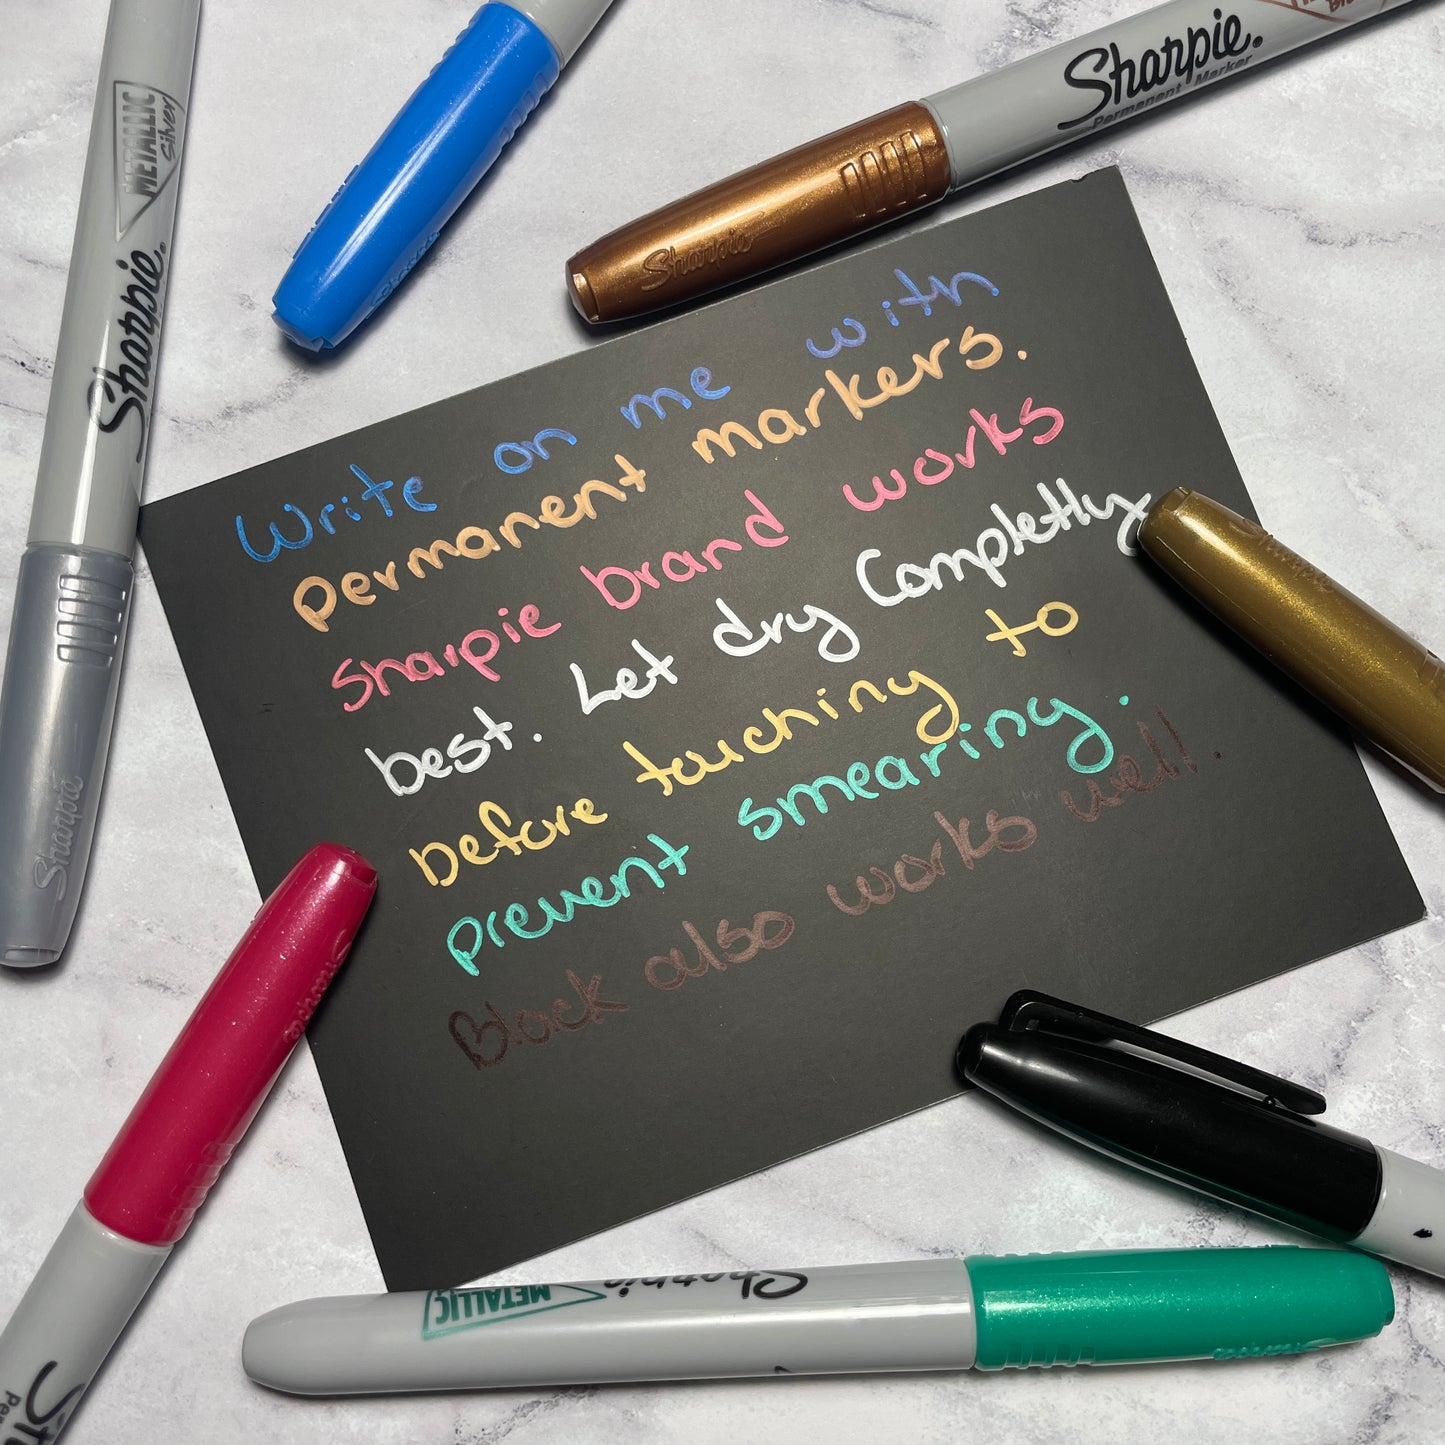 METALLIC
Silver
Sharpie.
Sharpie
Sharpie.
Permanent Marker
Sharpie
Write on me with
permanent markers.
Sharpie brand works
best. Let dry Completly
before touching to
prevent smearing.
Black also works well.
Sharpie
Sharpie
METALLIC
Sharpie
Sharpie